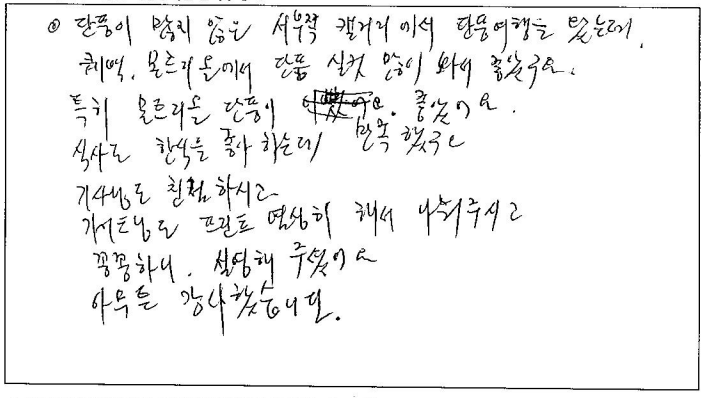 ◎ 단풍이 많지 않은 서부쪽 캘거리에서 단풍여행을 왔는데,
퀘백, 몬트리올에서 단풍 실컷 많이 봐서 좋았구요.
특히 몬트리올 단풍이 좋았어요.
식사도 한식을 좋아하는데 만족했구요
기사님도 친절하시고
가이드님도 프린트 열심히 해서 나눠주시고
꼼꼼하니, 설명해 주셨어요
아무튼 감사했습니다.